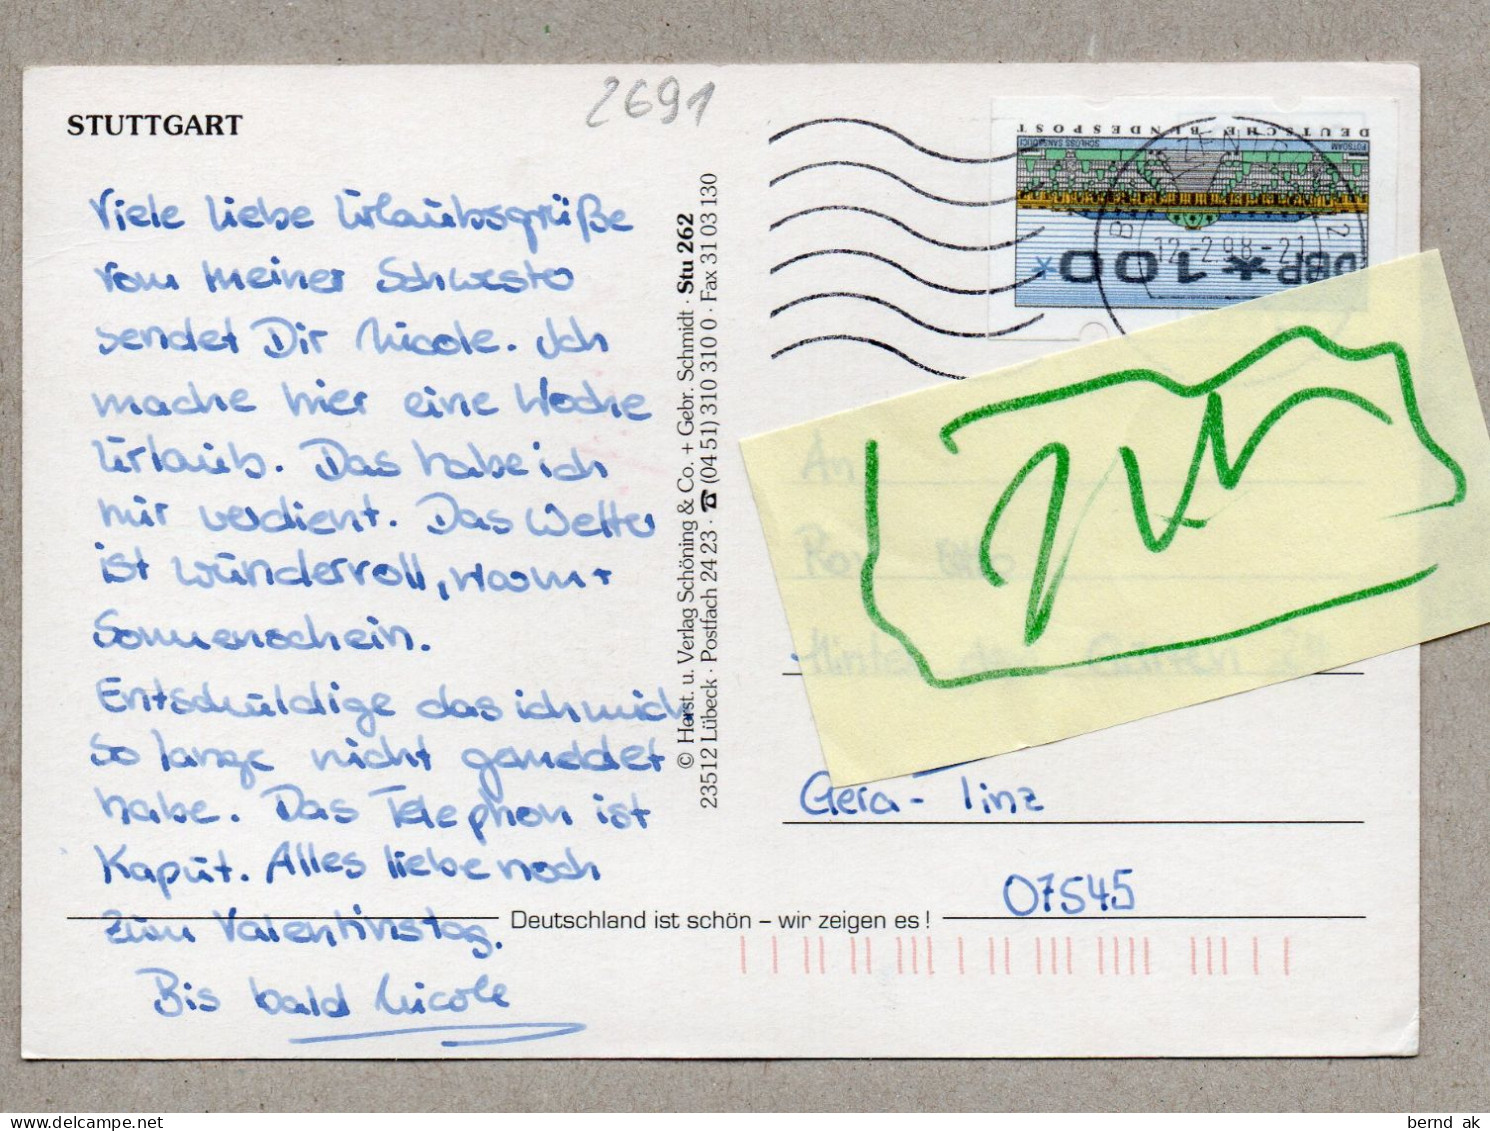 STUTTGART
2691
Viele liebe Urlaubsgrüße
vom meiner Schwester
sendet Dir Nicole. Ich
mache hier eine Woche
Urlaub. Das habe ich
mir verdient. Das Wetter
ist wundervoll, warm +
Sonnenschein.
Entschuldige das ich mich
so lange nicht gemeldet
habe. Das Telephon ist
Kaput. Alles liebe noch
zum Valentinstag.
Bis bald Nicole
© Horst. u. Verlag Schöning & Co. + Gebr. Schmidt · Stu 262
23512 Lübeck · Postfach 24 23 · ☎ (04 51) 310 310 0 · Fax 31 03 130
DEUTSCHE BUNDESPOST
SCHLOSS SANSSOUCI
POTSDAM
DBP*100*
12.-2.98-21
An
Otto
Hinter dem Garten
Gera - Tinz
07545
Deutschland ist schön – wir zeigen es !
bernd ak